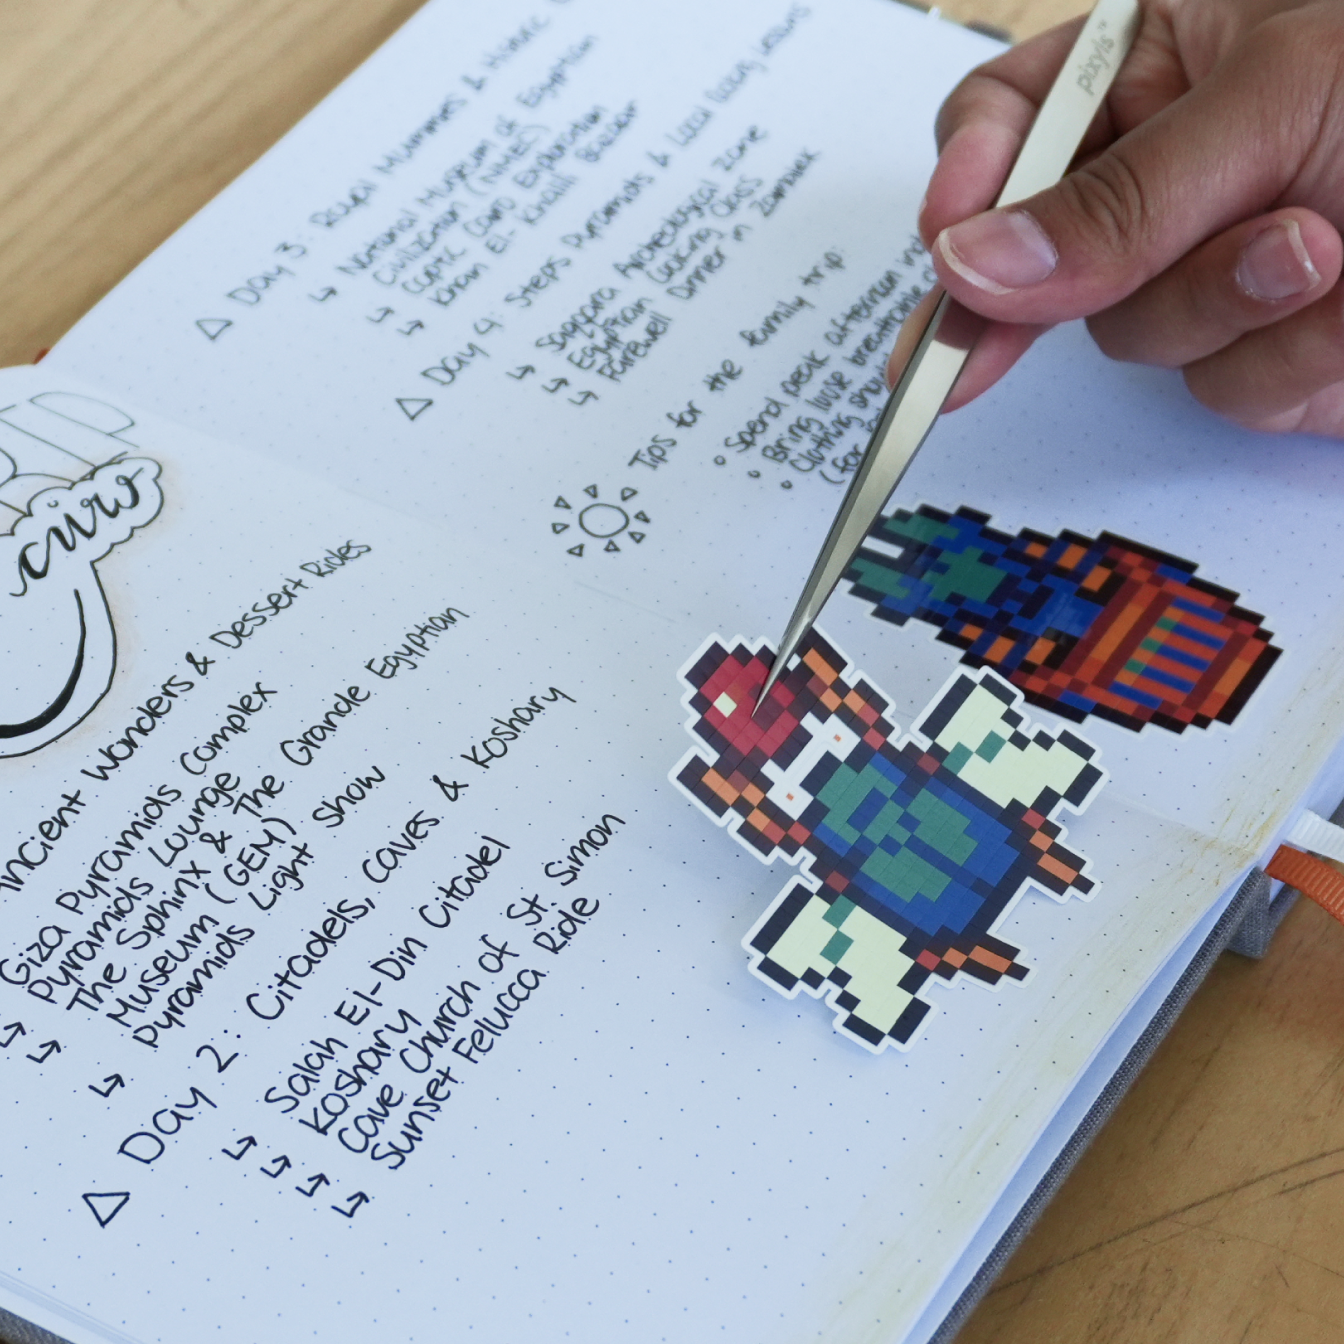 Day 3: Royal Mummies & Historic
↳ National Museum of Egyptian
Civilization (NMEC)
↳ Coptic Cairo Exploration
↳ Khan El-Khalili Bazaar
Day 4: Steps Pyramids & Local Cooking Lessons
↳ Saqqara Archeological Zone
↳ Egyptian Cooking Class
↳ Farewell Dinner in Zamalek
Tips for the family trip:
Spend peak afternoon
Bring loose breathable
Clothing
(for
TRIP
cairo
Ancient Wonders & Dessert Rides
Giza Pyramids Complex
Pyramids Lounge
↳ The Sphinx & The Grande Egyptian
↳ Museum (GEM)
↳ Pyramids Light Show
Day 2: Citadels, Caves & Koshary
↳ Salah El-Din Citadel
↳ Koshary
↳ Cave Church of St. Simon
↳ Sunset Felucca Ride
pixyls™